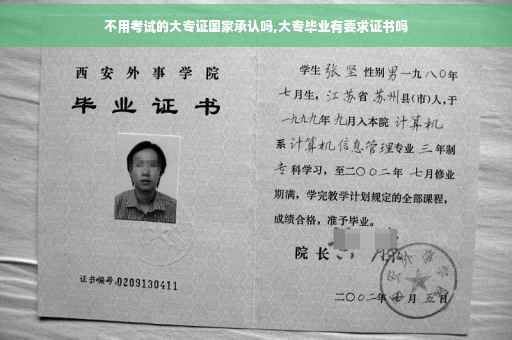 不用考试的大专证国家承认吗,大专毕业有要求证书吗
西安外事学院
毕业证书
证书编号:0209130411
学生 张坚 性别 男 一九八〇年
七月生,江苏省 苏州县(市)人,于
一九九九年 九月入本院 计算机
系 计算机信息管理专业 三 年制
专 科学习,至二〇〇二年 七月修业
期满,学完教学计划规定的全部课程,
成绩合格,准予毕业。
院长
二〇〇二年 七月 五日